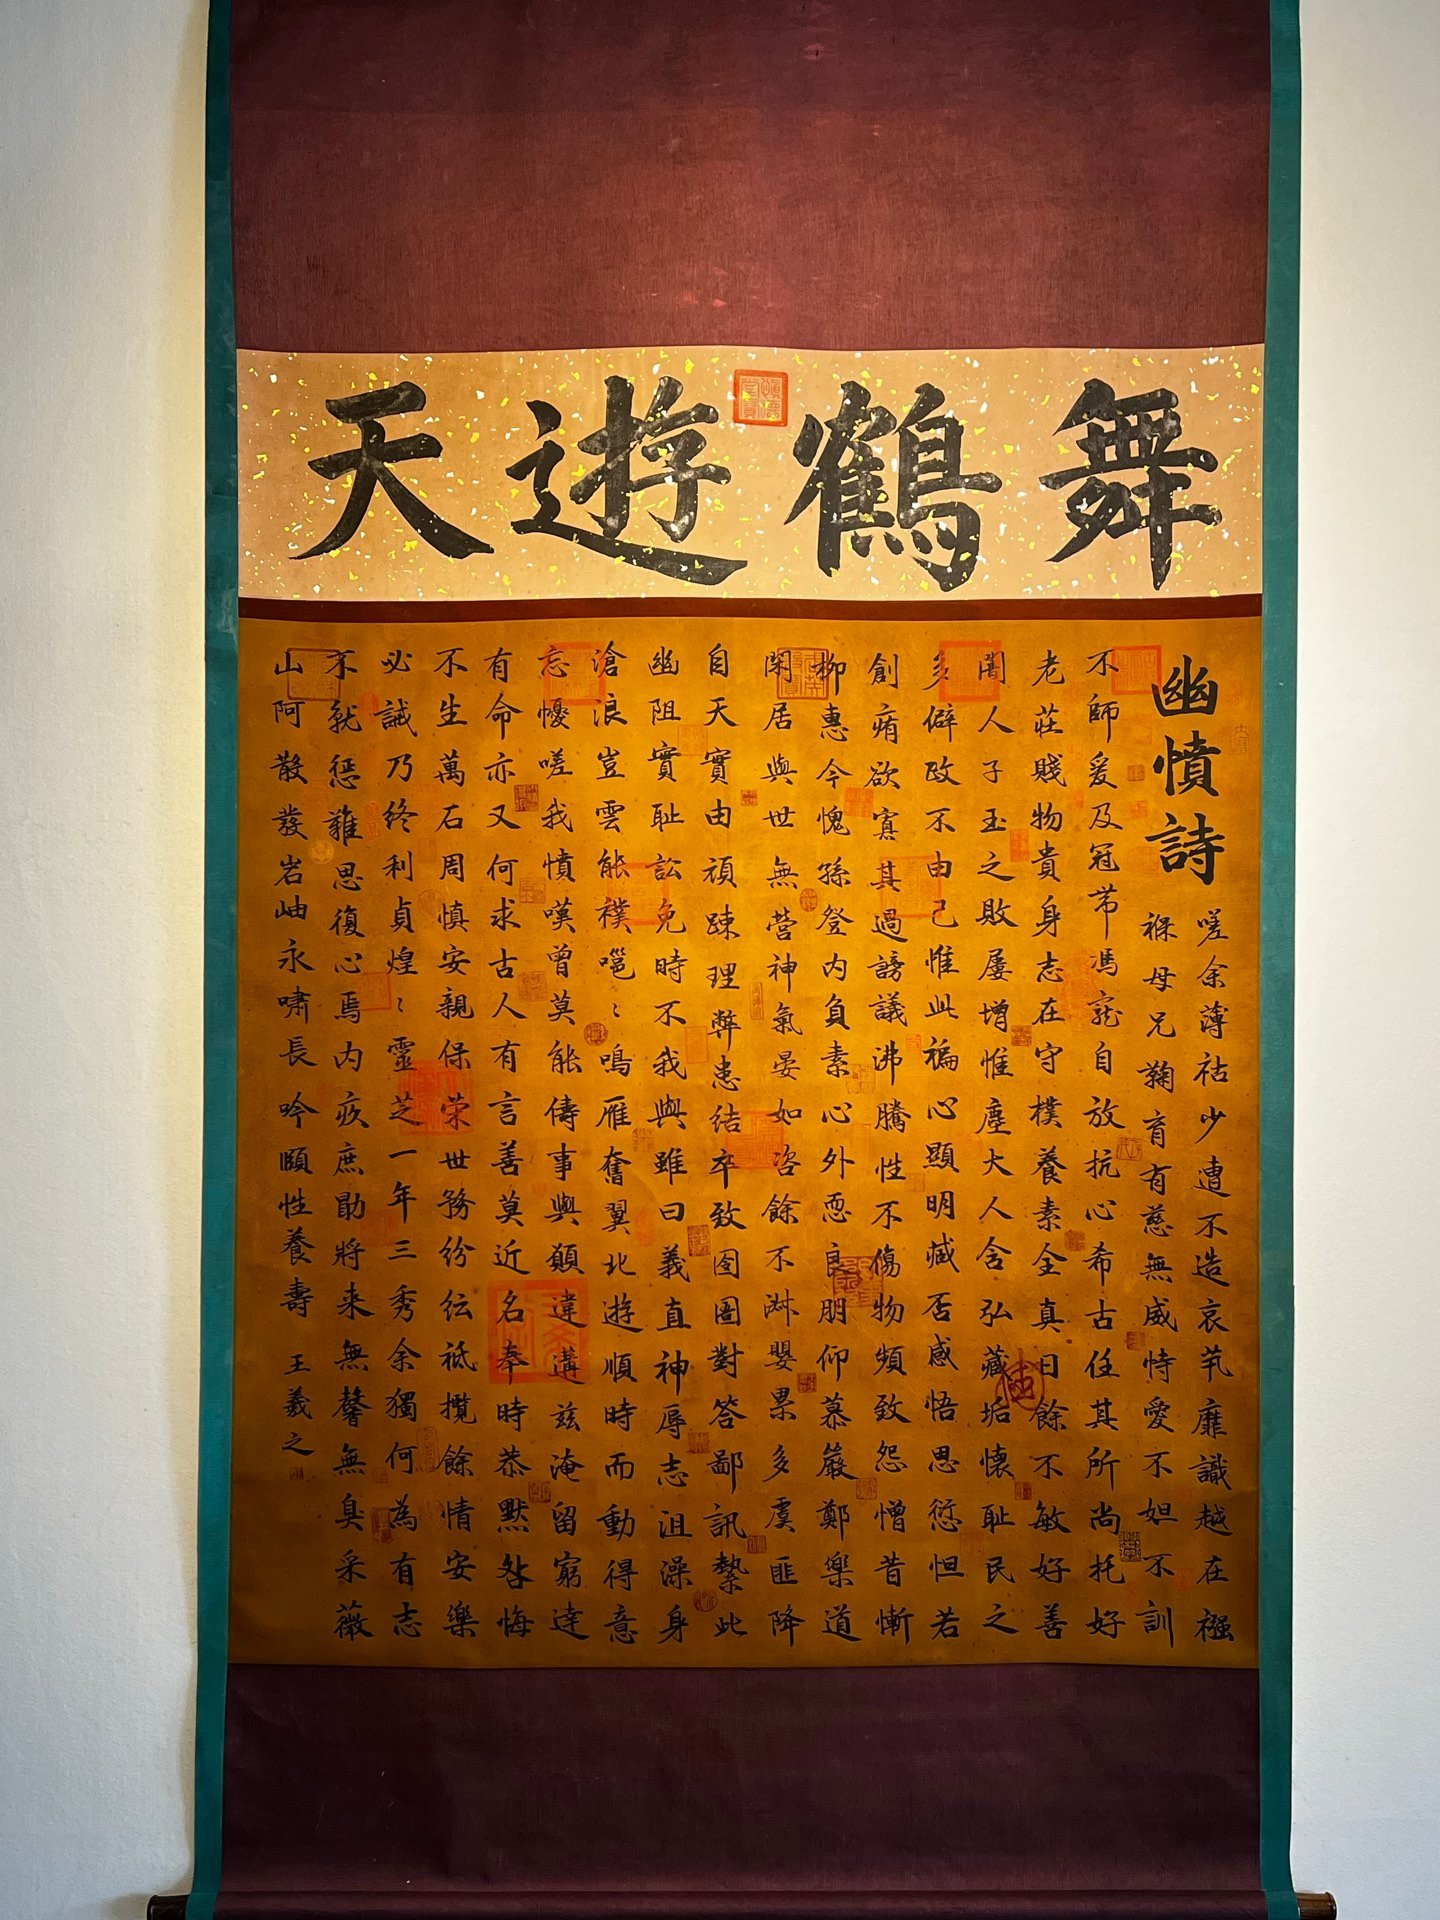 舞鶴遊天
幽憤詩
嗟余薄祜少遭不造哀茕靡識越在襁
褓母兄鞠育有慈無威恃愛不妲不訓
不師爰及冠帯馮寵自放抗心希古任其所尚托好
老莊賤物貴身志在守樸養素全真曰餘不敏好善
闇人子玉之敗屢增惟塵大人含弘藏垢懷耻民之
多僻政不由己惟此褊心顯明臧否感悟思愆怛若
創痏欲寡其過謗議沸騰性不傷物頻致怨憎昔慚
柳惠今愧孫登内負素心外恧良朋仰慕嚴鄭樂道
閑居與世無營神氣晏如咨餘不淋嬰累多虞匪降
自天實由頑疎理弊患結卒致囹圄對答鄙訊縶此
幽阻實耻訟免時不我與雖曰義直神辱志沮澡身
滄浪豈雲能穫嗈〻鳴雁奮翼北遊順時而動得意
忘懮嗟我憤嘆曾莫能儔事與願違遘兹淹留窮達
有命亦又何求古人有言善莫近名奉時恭默咎悔
不生萬石周慎安親保荣世務紛紜祗攬餘情安樂
必誡乃終利貞煌〻靈芝一年三秀余獨何為有志
不就惩難思復心焉内疚庶勖將来無馨無臭采薇
山阿散發岩岫永嘯長吟頤性養壽 王羲之